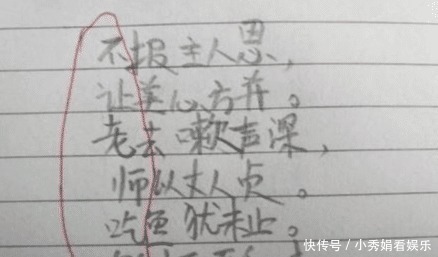 不报主人恩，
让美心方并。
老去嗽声深，
师以丈人贞。
吃鱼犹未止。
快传号 / 小秀娟看娱乐